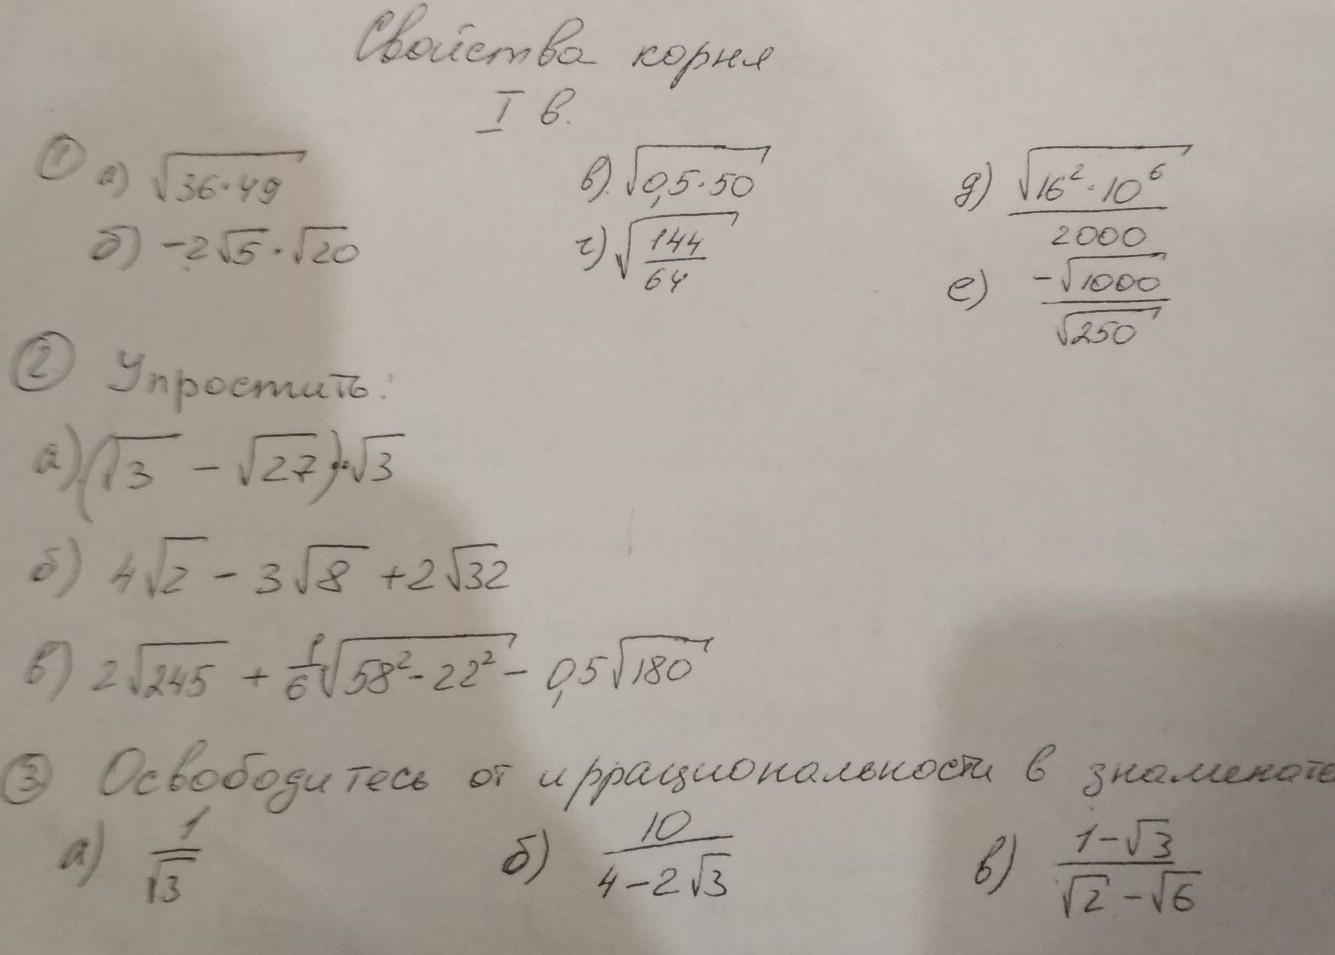 Свойства корня
I в.
① а) √(36·49) в) √(0,5·50) д) √(16²·10⁶)/2000
б) -2√5·√20 г) √(144/64) е) -√1000/√250
② Упростить:
а) (√3 - √27)·√3
б) 4√2 - 3√8 + 2√32
в) 2√245 + 1/6√(58²-22²) - 0,5√180
③ Освободитесь от иррациональности в знаменате
а) 1/√3 б) 10/(4-2√3) в) (1-√3)/(√2-√6)